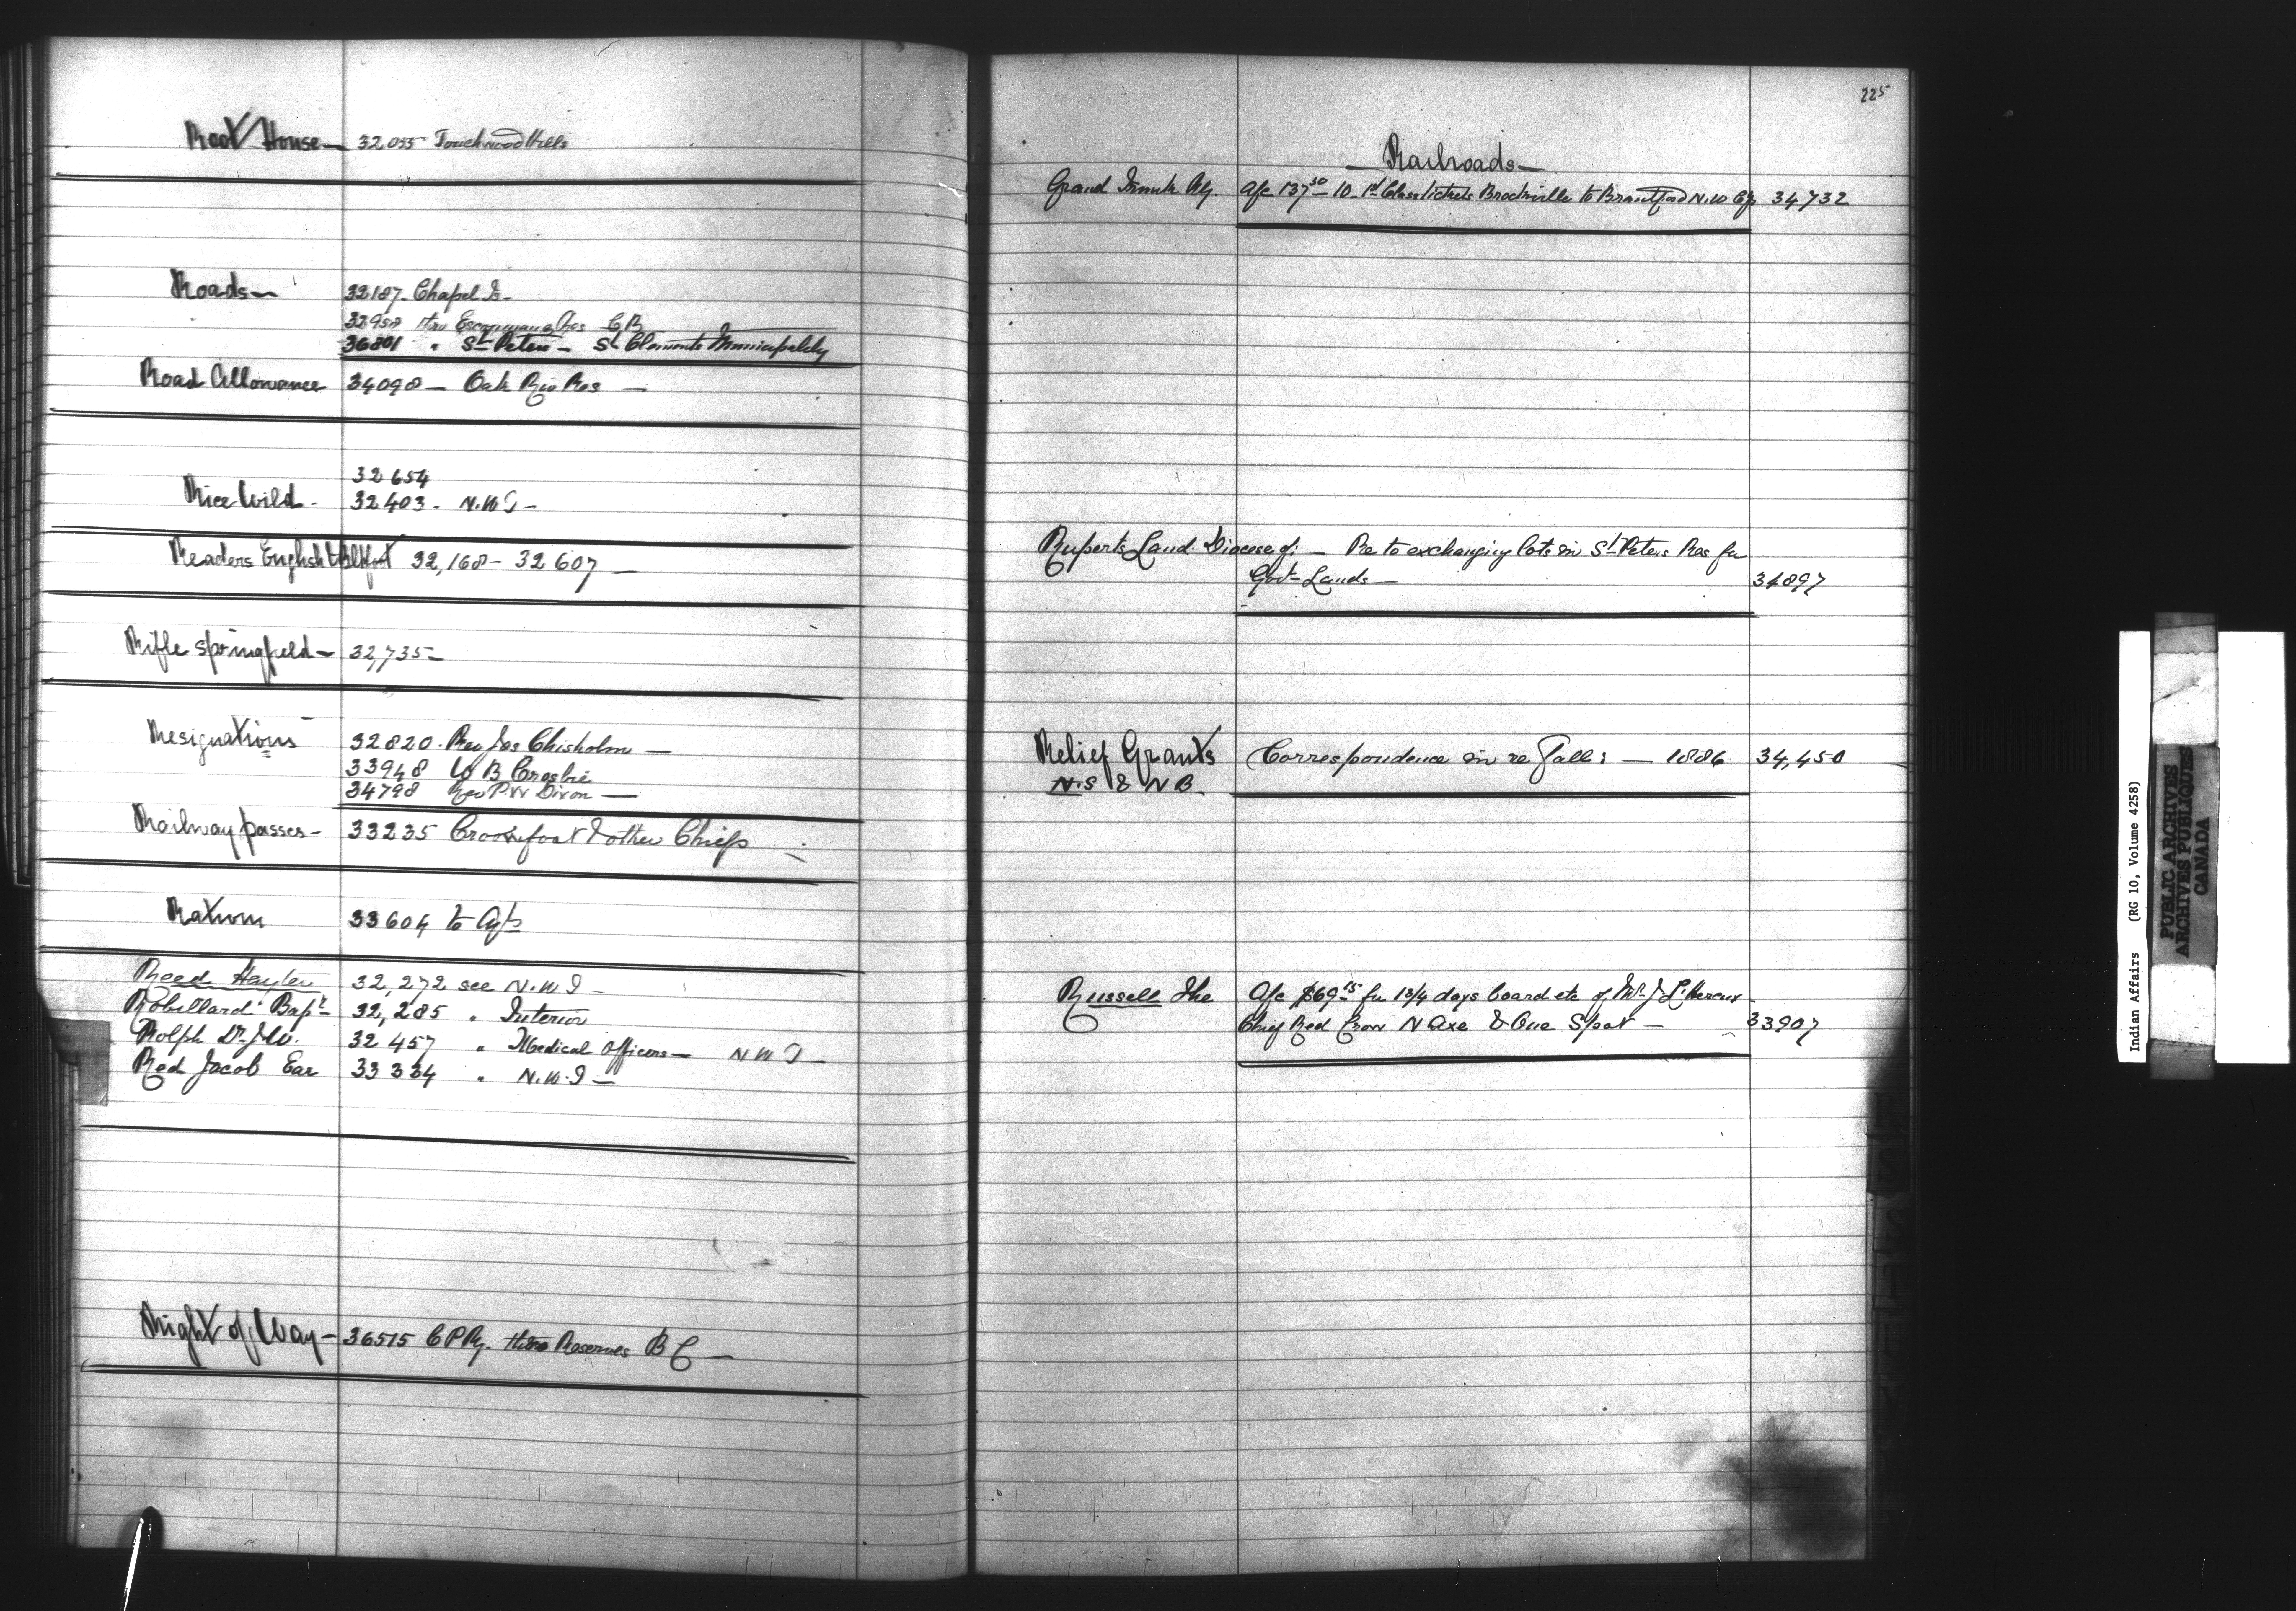 Root House — 32055 Touchwood Hills
Roads — 32187 - Chapel Is -
32958 thro Escoumains Res
36801 " St Peters — St Clements Municipality
Road Allowance 34098 — Oak Riv Res —
32654
Rice Wild - 32403 - N.W.T -
Readers English & 32,168 - 32607 —
Rifle Springfield — 32,735 —
Resignations 32820 - Rev Jas Chisholm —
33948 W B Crosbie
34798 Rev P. W Dixon —
Railway passes - 33235 Crowfoot & other Chiefs
Rations 33604 to Agts
Reed Hayter 32,272 see N.W.T -
Robillard Bapt 32,285 " Interior
Rolph Dr J.W. 32457 " Medical Officers — N W T —
Red Jacob Ear 33334 " N.W.T —
Right of Way - 36515 C P Ry. thro Reserves B C —
225
— Railroads —
Grand Trunk Ry. a/c 137 50 — 10 - 1st Class tickets Brockville to Brantford N.W 34732
Ruperts Land. Diocese of: — Re to exchanging lots in St Peters Res for
Govt Lands — 34897
Relief Grants Correspondence in re Fall: — 1886 34,450
N.S & N B.
Russell The a/c $69 15 for 13/4 days board etc of Mr. J L'Hereux
Chief Red Crow N Axe & One Spot — 33907
Indian Affairs (RG 10, Volume 4258)
PUBLIC ARCHIVES
ARCHIVES PUBLIQUES
CANADA